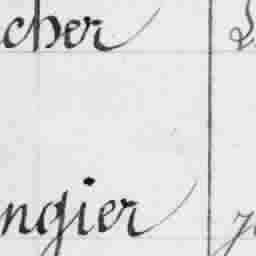 cher
ngier